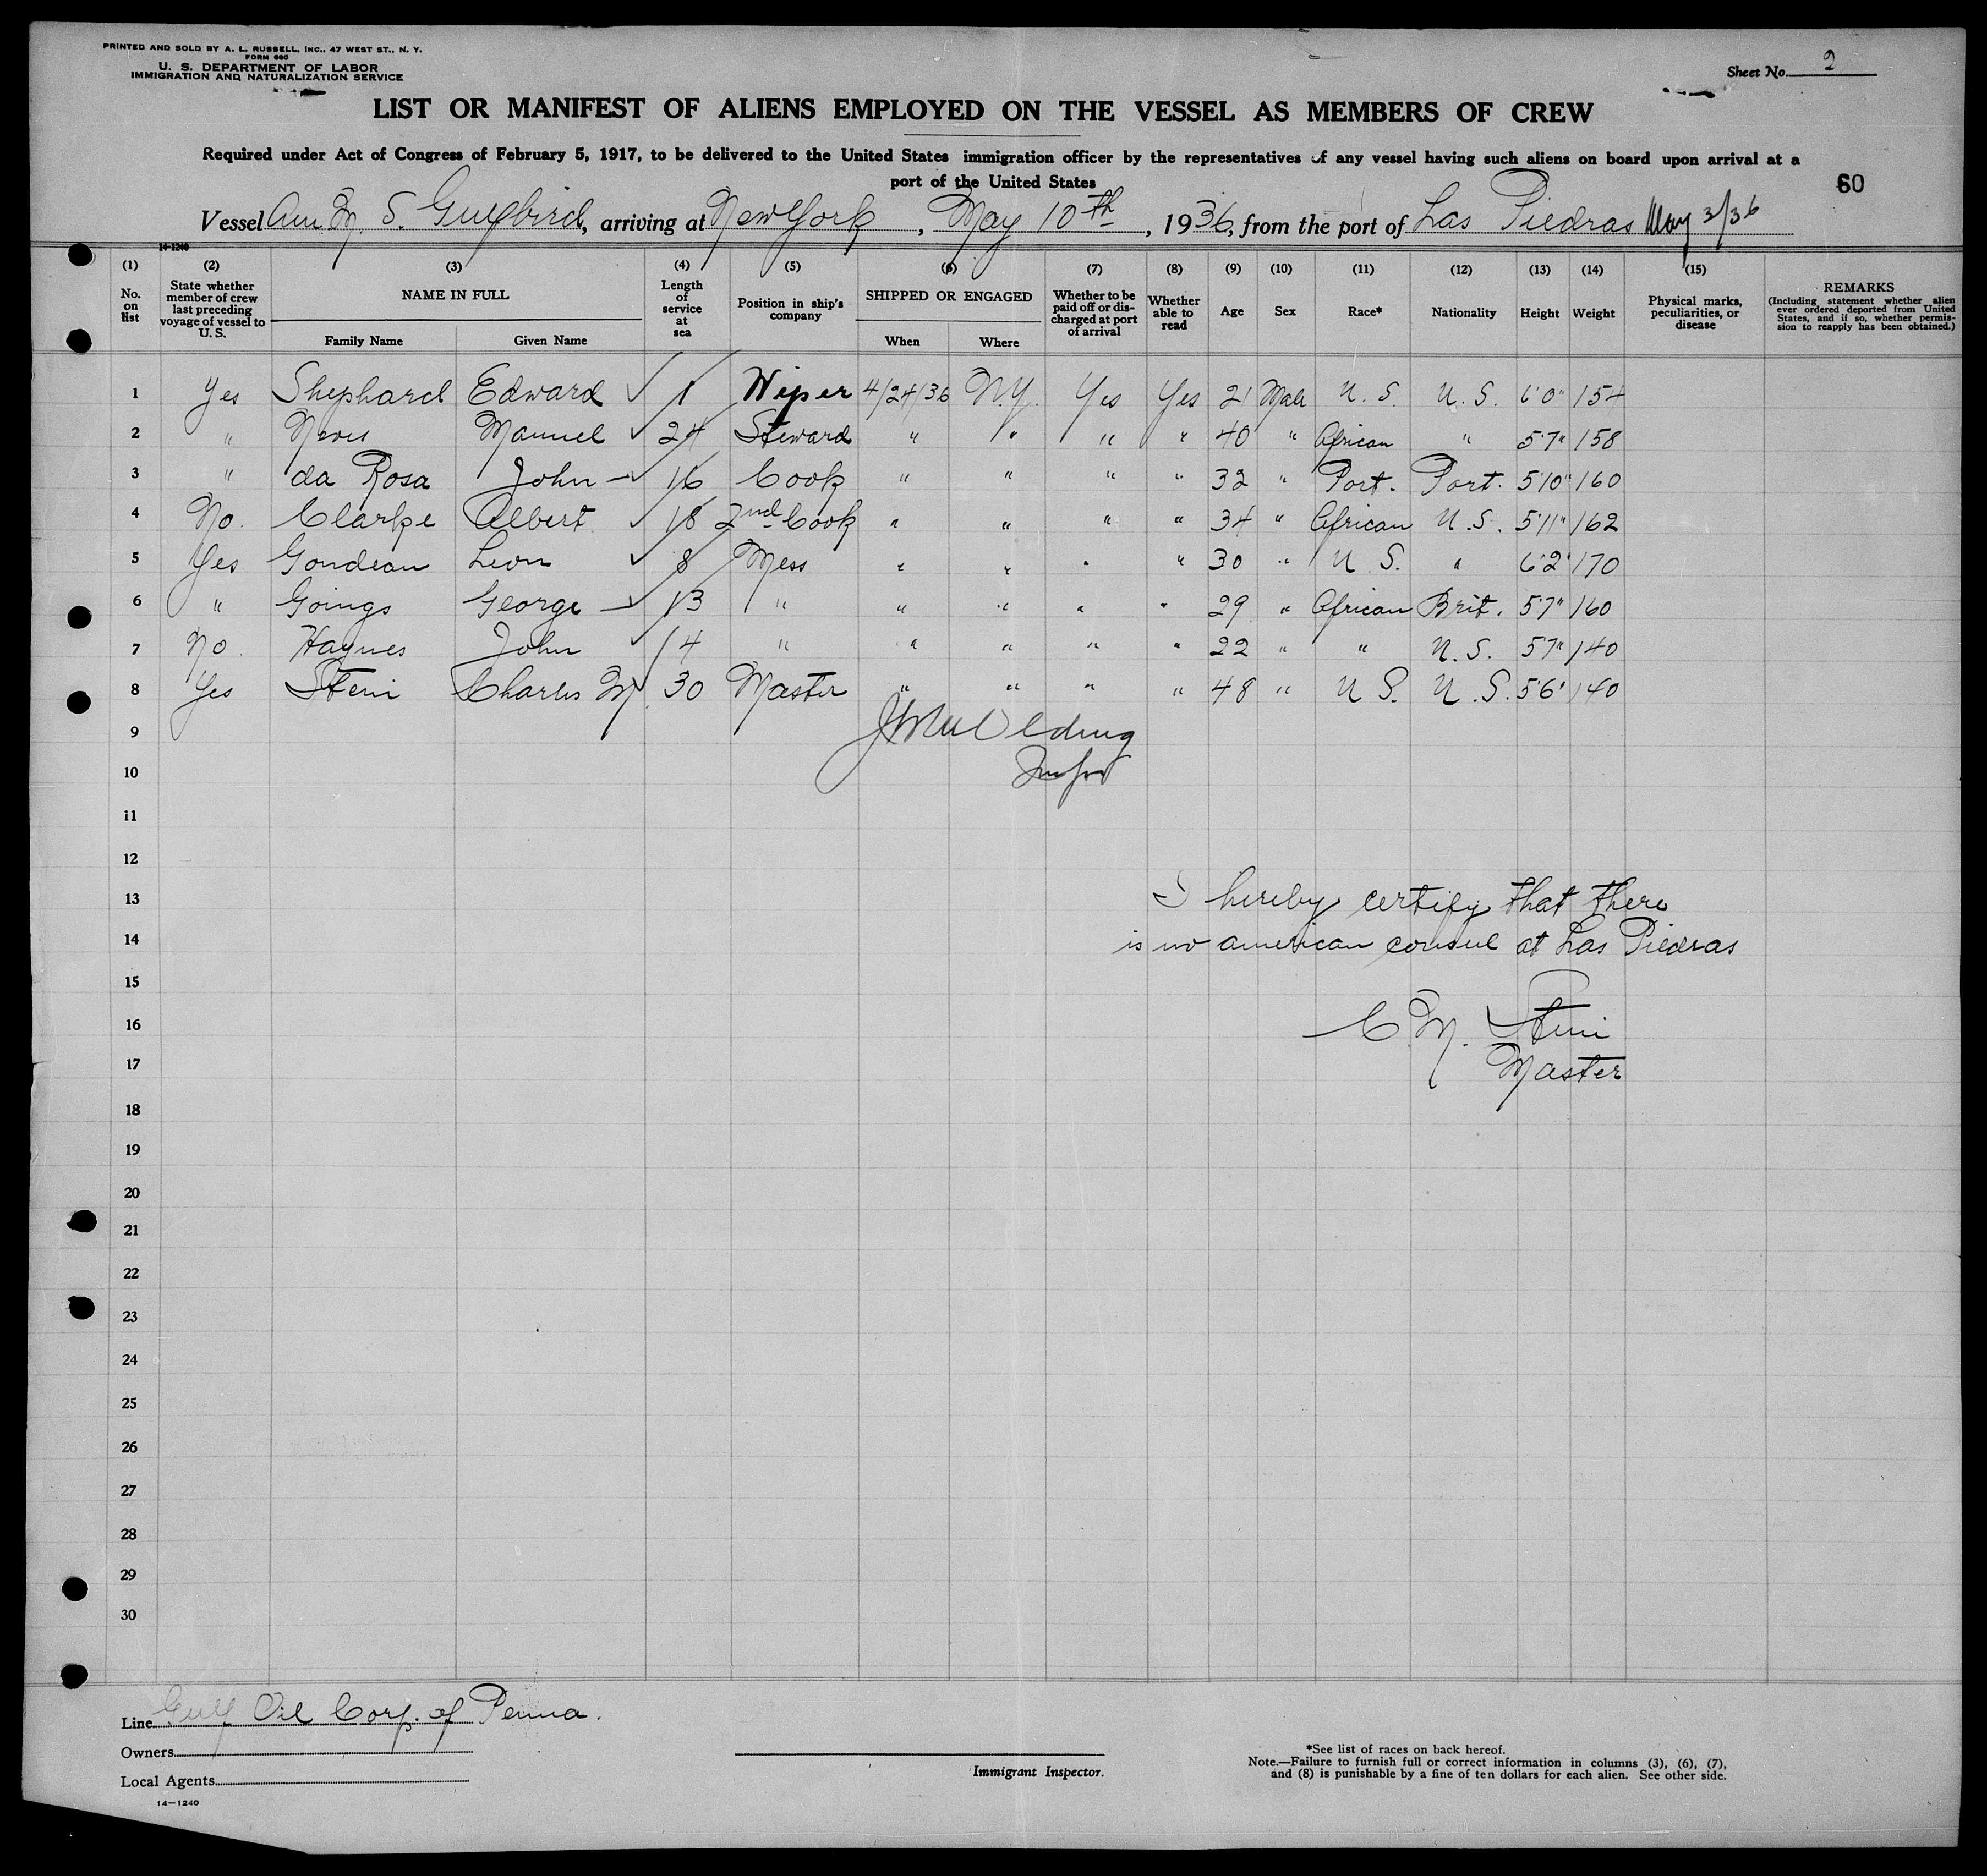 PRINTED AND SOLD BY A. L. RUSSELL, INC., 47 WEST ST., N. Y.
FORM 680
U. S. DEPARTMENT OF LABOR
IMMIGRATION AND NATURALIZATION SERVICE
Sheet No. 2
LIST OR MANIFEST OF ALIENS EMPLOYED ON THE VESSEL AS MEMBERS OF CREW
Required under Act of Congress of February 5, 1917, to be delivered to the United States immigration officer by the representatives of any vessel having such aliens on board upon arrival at a
port of the United States
60
Vessel Am. M. S. Gulfbird, arriving at New York, May 10th, 1936, from the port of Las Piedras May 3/36
14-1240
(1) (2) (3) (4) (5) (6) (7) (8) (9) (10) (11) (12) (13) (14) (15)
No. on list
State whether member of crew last preceding voyage of vessel to U. S.
NAME IN FULL
Family Name Given Name
Length of service at sea
Position in ship's company
SHIPPED OR ENGAGED
When Where
Whether to be paid off or discharged at port of arrival
Whether able to read
Age Sex Race* Nationality Height Weight
Physical marks, peculiarities, or disease
REMARKS
(Including statement whether alien ever ordered deported from United States, and if so, whether permission to reapply has been obtained.)
1 Yes Shephard Edward ✓ 1 Wiper 4/24/36 N.Y. Yes Yes 21 Male U. S. U. S. 6'0" 154
2 " Neves Manuel ✓ 24 Steward " " " " 40 " African " 5'7" 158
3 " da Rosa John ✓ 16 Cook " " " " 32 " Port. Port. 5'10" 160
4 No. Clarke Albert ✓ 18 2nd Cook " " " " 34 " African U.S. 5'11" 162
5 Yes Gondeau Leon ✓ 8 Mess " " " " 30 " U S. " 6'2" 170
6 " Goings George ✓ 13 " " " " " 29 " African Brit. 5'7" 160
7 No Haynes John ✓ 14 " " " " " 22 " " U.S. 5'7" 140
8 Yes Stein Charles M. 30 Master " " " " 48 " U S. U.S. 5'6" 140
9
10
11
12
13 I hereby certify that there
14 is no american consul at Las Piedras
15
16 C. M. Stein
17 Master
18
19
20
21
22
23
24
25
26
27
28
29
30
Line Gulf Oil Corp. of Penna.
Owners
Local Agents
14—1240
Immigrant Inspector.
*See list of races on back hereof.
Note.—Failure to furnish full or correct information in columns (3), (6), (7),
and (8) is punishable by a fine of ten dollars for each alien. See other side.